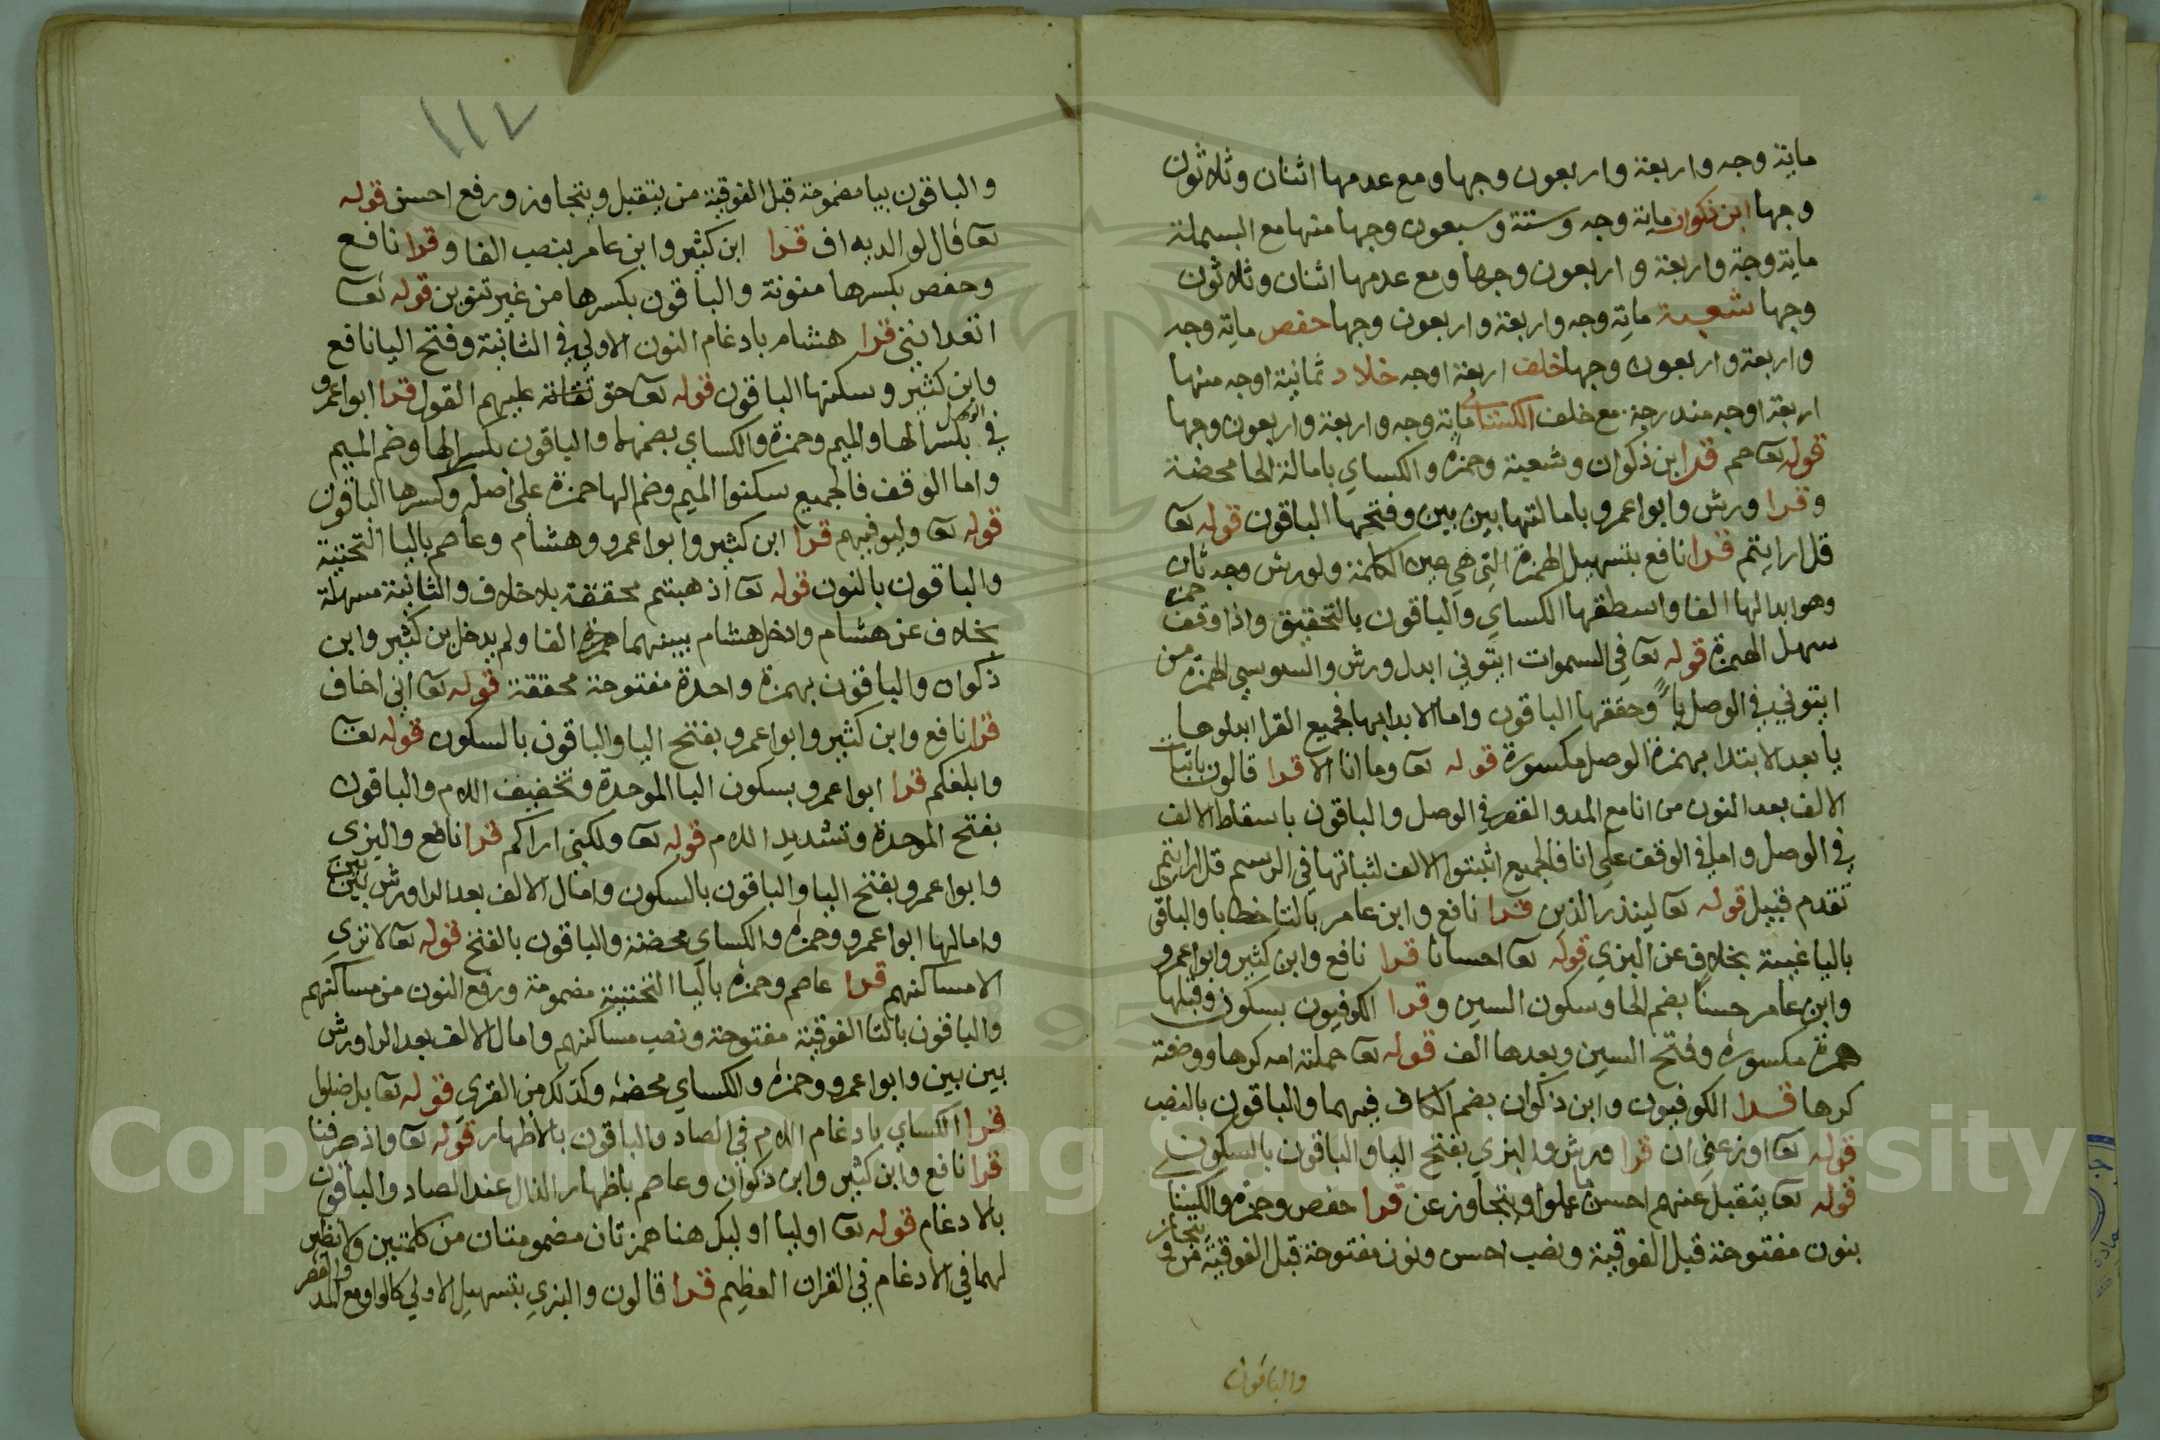 ماية وجه واربعة واربعون وجها ومع عدمها اثنان وثلاثون
وجها ابن ذكوان ماية وجه وستة وسبعون وجها منها مع البسملة
ماية وجه واربعة واربعون وجها ومع عدمها اثنان وثلاثون
وجها شعبة ماية وجه واربعة واربعون وجها حفص ماية وجه
واربعة واربعون وجها خلف اربعة اوجه خلاد ثمانية اوجه منها
اربعة اوجه مندرجة مع خلف الكسائي ماية وجه واربعة واربعون وجها
قوله تعا حم قرا ابن ذكوان وشعبة وحمزة والكساي بامالة الحا محضة
وقرا ورش وابوا عمرو بامالتها بين بين وفتحها الباقون قوله تعا
قل ارايتم قرا نافع بتسهيل الهمزة التي هي عين الكلمة ولورش وجه ثان
وهو ابدالها الفا واسطقها الكساي والباقون بالتحقيق واذا وقف حمزة
سهل الهمزة قوله تعا في السموات ايتوني ابدل ورش والسوسي الهمزة من
ايتوني في الوصل ياً وحققها الباقون واما الابدا بها فجميع القرا ابدلوها
يا بعد الابتدا بهمزة الوصل مكسورة قوله تعا وما انا الا قرا قالون باثبات
الالف بعد النون من انا مع المد والقصر في الوصل والباقون باسقاط الالف
في الوصل واما في الوقف على انا فالجميع اثبتوا الالف لثباتها في الرسم قل ارايتم
تقدم قبيل قوله تعا لينذر الذين قرا نافع وابن عامر بالتا خطابا والباقي
باليا غيبة بخلاف عن البزي قوله تعا احسانا قرا نافع وابن كثير وابوا عمرو
وابن عامر حسنا بضم الحا وسكون السين وقرا الكوفيون بسكون وقبلها
همزة مكسورة وفتح السين وبعدها الف قوله تعا حملته امه كرها ووضعته
كرها قرا الكوفيون وابن ذكوان بضم الكاف فيهما والباقون بالنصب
قوله تعا اوزعني ان قرا ورش والبزي بفتح اليا والباقون بالسكون
قوله تعا يتقبل عنهم احسن ما عملوا ويتجاوز عن قرا حفص وحمزة والكسا
بنون مفتوحة قبل الفوقية ونصب احسن ونون مفتوحة قبل الفوقية من ويتجاوز
والباقون
١١٧
والباقون بيا مضمومة قبل الفوقية من يتقبل ويتجاوز ورفع احسن قوله
تعا قال لوالديه اف قرا ابن كثير وابن عامر بنصب الفا وقرا نافع
وحفص بكسرها منونة والباقون بكسرها من غير تنوين قوله تعا
اتعدانني قرا هشام بادغام النون الاولي في الثانية وفتح اليا نافع
وابن كثير وسكنها الباقون قوله تعا حق عليهم القول قرا ابوا عمرو
في الوصل بكسر الها والميم وحمزة والكساي بضمهما والباقون بكسر الها وضم الميم
واما الوقف فالجميع سكنوا الميم وضم الها حمزة على اصله وكسرها الباقون
قوله تعا وليوفيهم قرا ابن كثير وابوا عمرو وهشام وعاصم باليا التحتية
والباقون بالنون قوله تعا اذهبتم محققة بلا خلاف والثانية مسهلة
بخلاف عن هشام وادخل هشام بينهما همزة الفا ولم يدخل بن كثير وابن
ذكوان والباقون بهمزة واحدة مفتوحة محققة قوله تعا اني اخاف
قرا نافع وابن كثير وابوا عمرو بفتح اليا والباقون بالسكون قوله تعا
وابلغكم قرا ابوا عمرو بسكون البا الموحدة وتخفيف اللام والباقون
بفتح الموحدة وتشديد اللام قوله تعا ولكني اراكم قرا نافع والبزي
وابوا عمرو بفتح اليا والباقون بالسكون وامال الالف بعد الرا ورش بين بين
وامالها ابوا عمرو وحمزة والكساي محضة والباقون بالفتح قوله تعا لا ترى
الا مساكنهم قرا عاصم وحمزة باليا التحتيية مضمومة ورفع النون من مساكنهم
والباقون بالتا الفوقية مفتوحة ونصب مساكنهم وامال الالف بعد الرا ورش
بين بين وابوا عمرو وحمزة والكساي محضة وكذلك من القري قوله تعا بل ضلوا
قرا الكساي بادغام اللام في الصاد والباقون بالاظهار قوله تعا واذ صرفنا
قرا نافع وابن كثير وابن ذكوان وعاصم باظهار الذال عند الصاد والباقون
بالادغام قوله تعا اوليا اوليك هنا همزتان مضمومتان من كلمتين ولا نظير
لهما في الادغام في القران العظيم قرا قالون والبزي بتسهيل الاولي كالواو مع المد والقصر